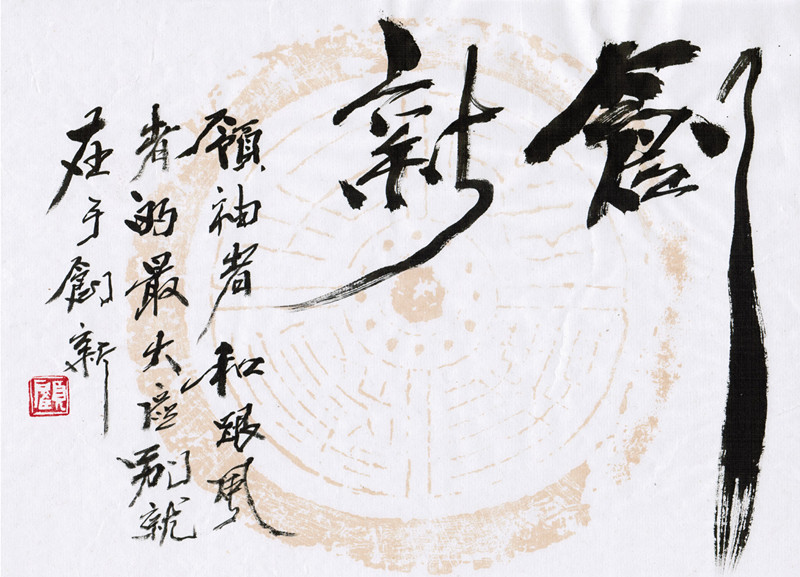 創新
領袖者和跟風
者的最大區别就
在于創新
顧